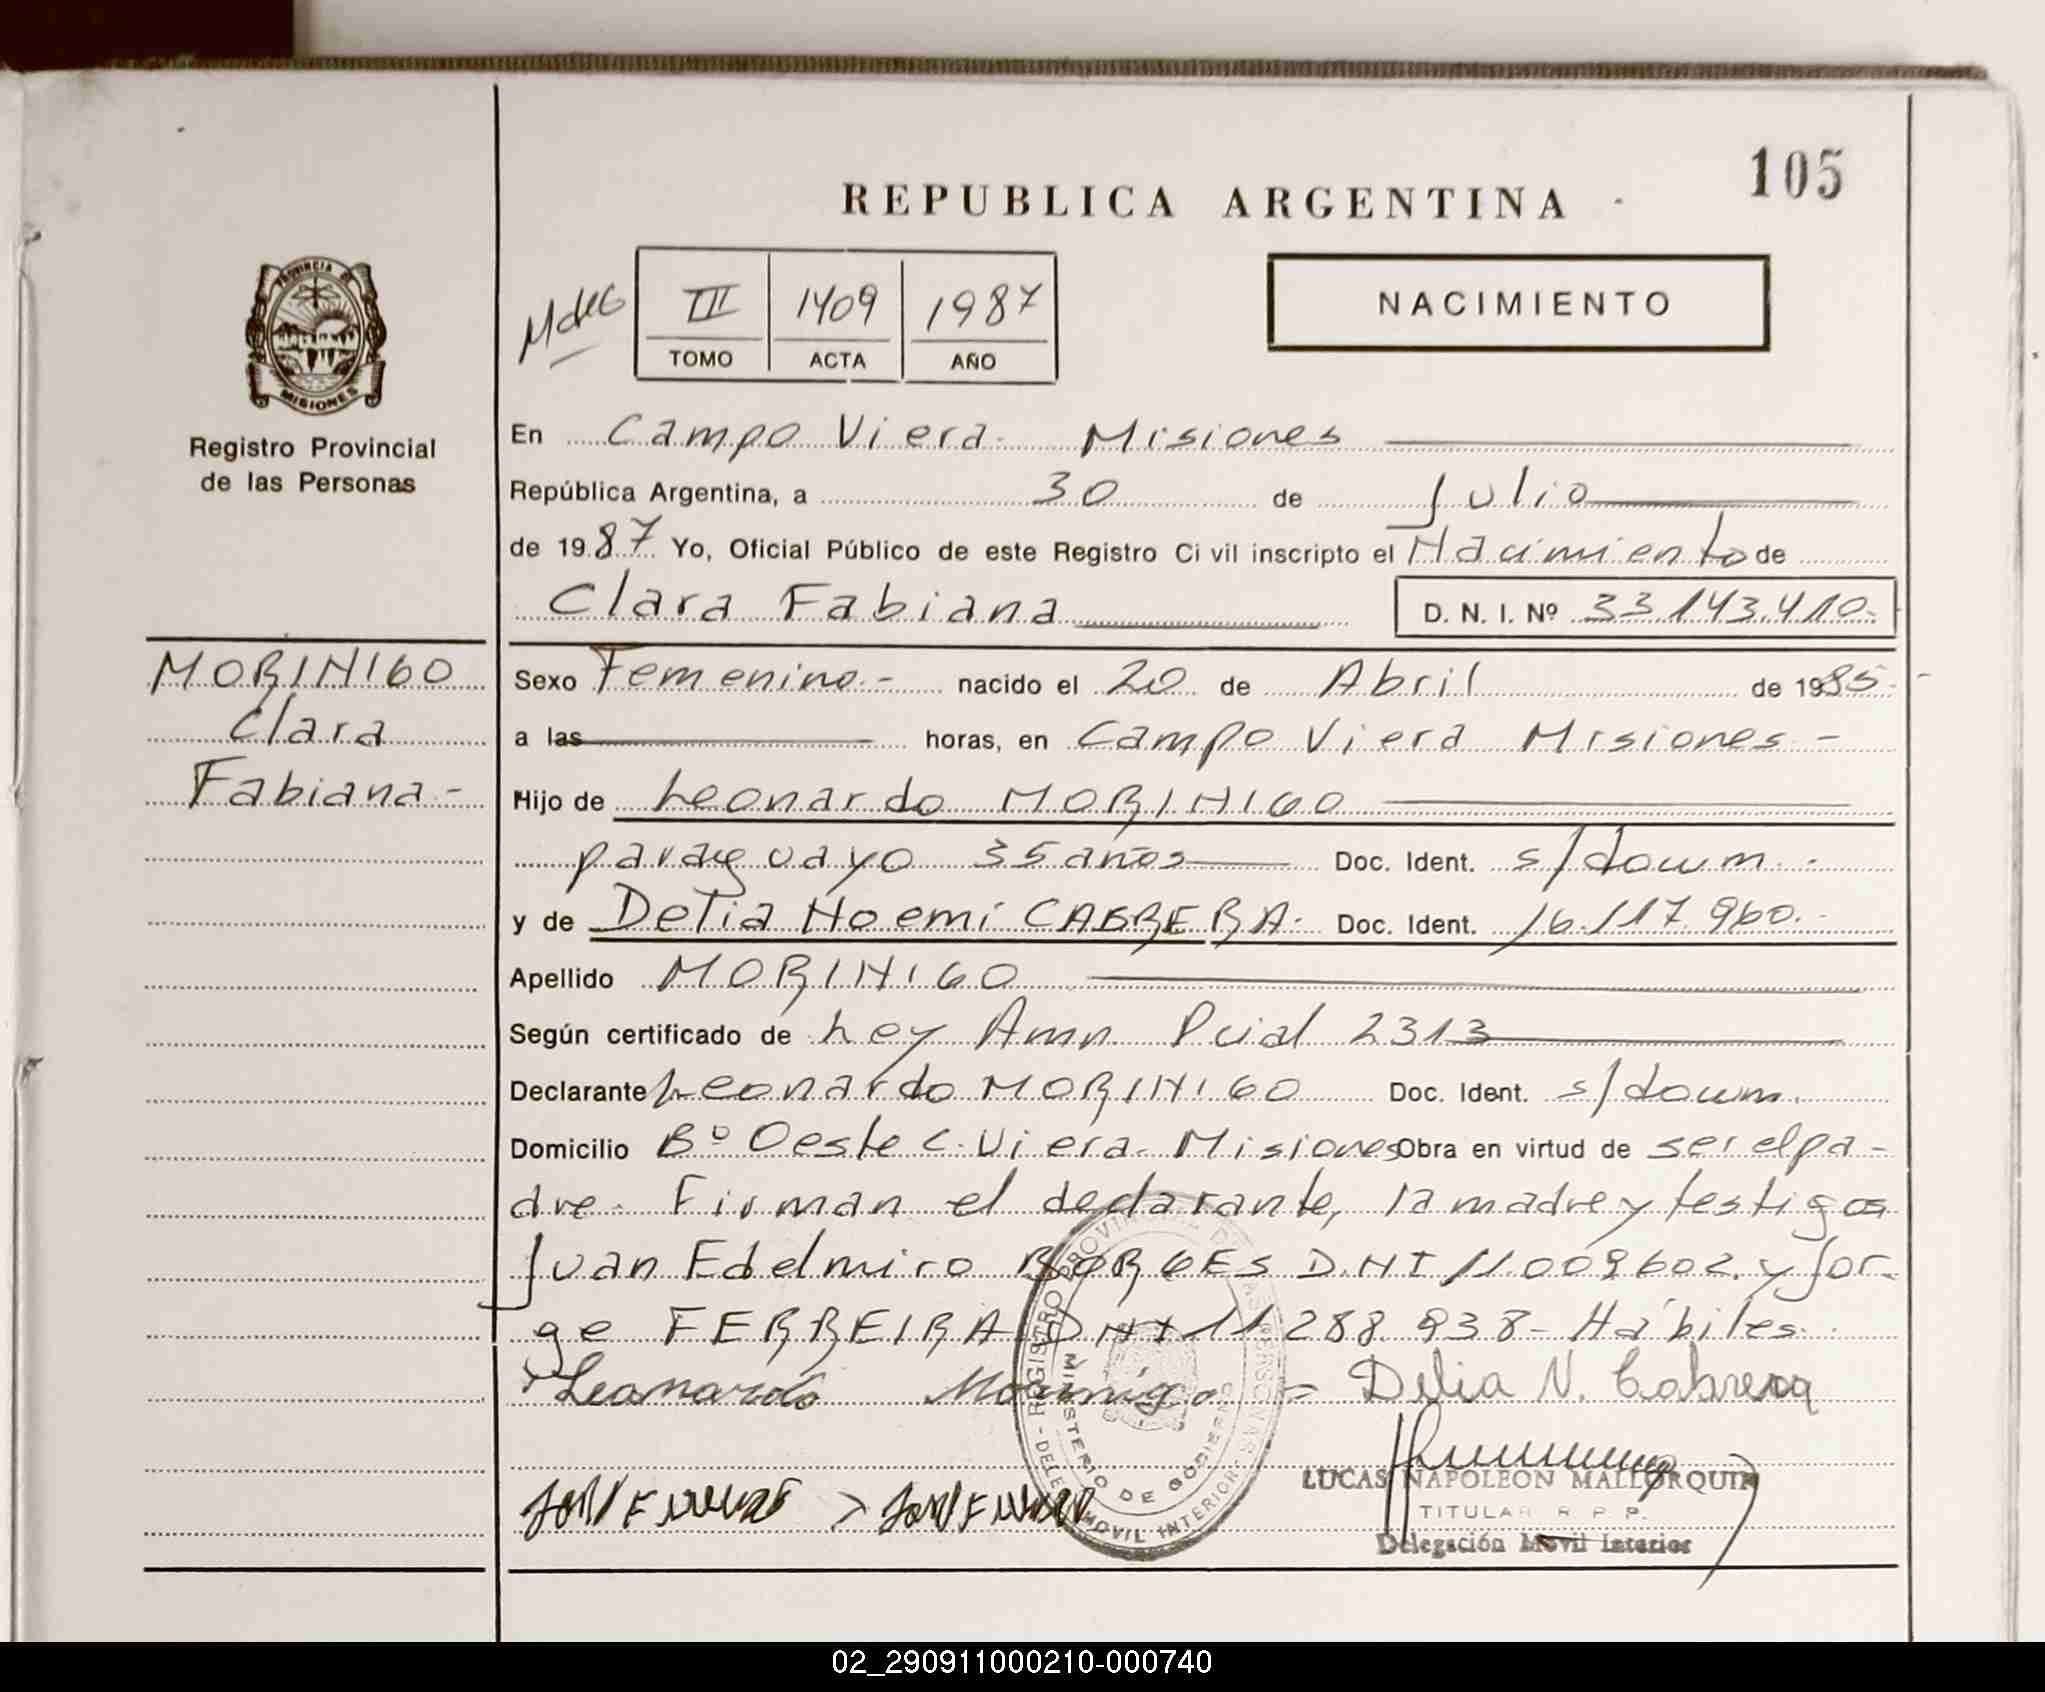 105
REPUBLICA ARGENTINA
NACIMIENTO
III 1409 1987
TOMO ACTA AÑO
PROVINCIA DE
MISIONES
Registro Provincial
de las Personas
En Campo Viera - Misiones
República Argentina, a 30 de Julio
de 1987 Yo, Oficial Público de este Registro Civil inscripto el Nacimiento de
Clara Fabiana D. N. I. Nº 33.143.410.-
MORINIGO
Clara
Fabiana -
Sexo Femenino - nacido el 20 de Abril de 1985-
a las horas, en Campo Viera Misiones -
Hijo de Leonardo MORINIGO
paraguayo 35 años Doc. Ident. s/docum.-
y de Delia Noemi CABRERA - Doc. Ident. 16.117.960.-
Apellido MORINIGO
Según certificado de Ley Amn. Pcial 2313
Declarante Leonardo MORINIGO Doc. Ident. s/docum.
Domicilio Bº Oeste C. Viera - Misiones Obra en virtud de ser el pa-
dre - Firman el declarante, la madre y testigos
Juan Edelmiro BORGES D.N.I 11.009.602. y Jor-
ge FERREIRA DNI 11.288.938 - Hábiles.
Leonardo Morinigo = Delia N. Cabrera
REGISTRO PROVINCIAL DE LAS PERSONAS - DELEG. MOVIL INTERIOR -
MINISTERIO DE GOBIERNO
LUCAS NAPOLEON MALLORQUIN
TITULAR R. P. P.
Delegación Movil Interior
02_290911000210-000740